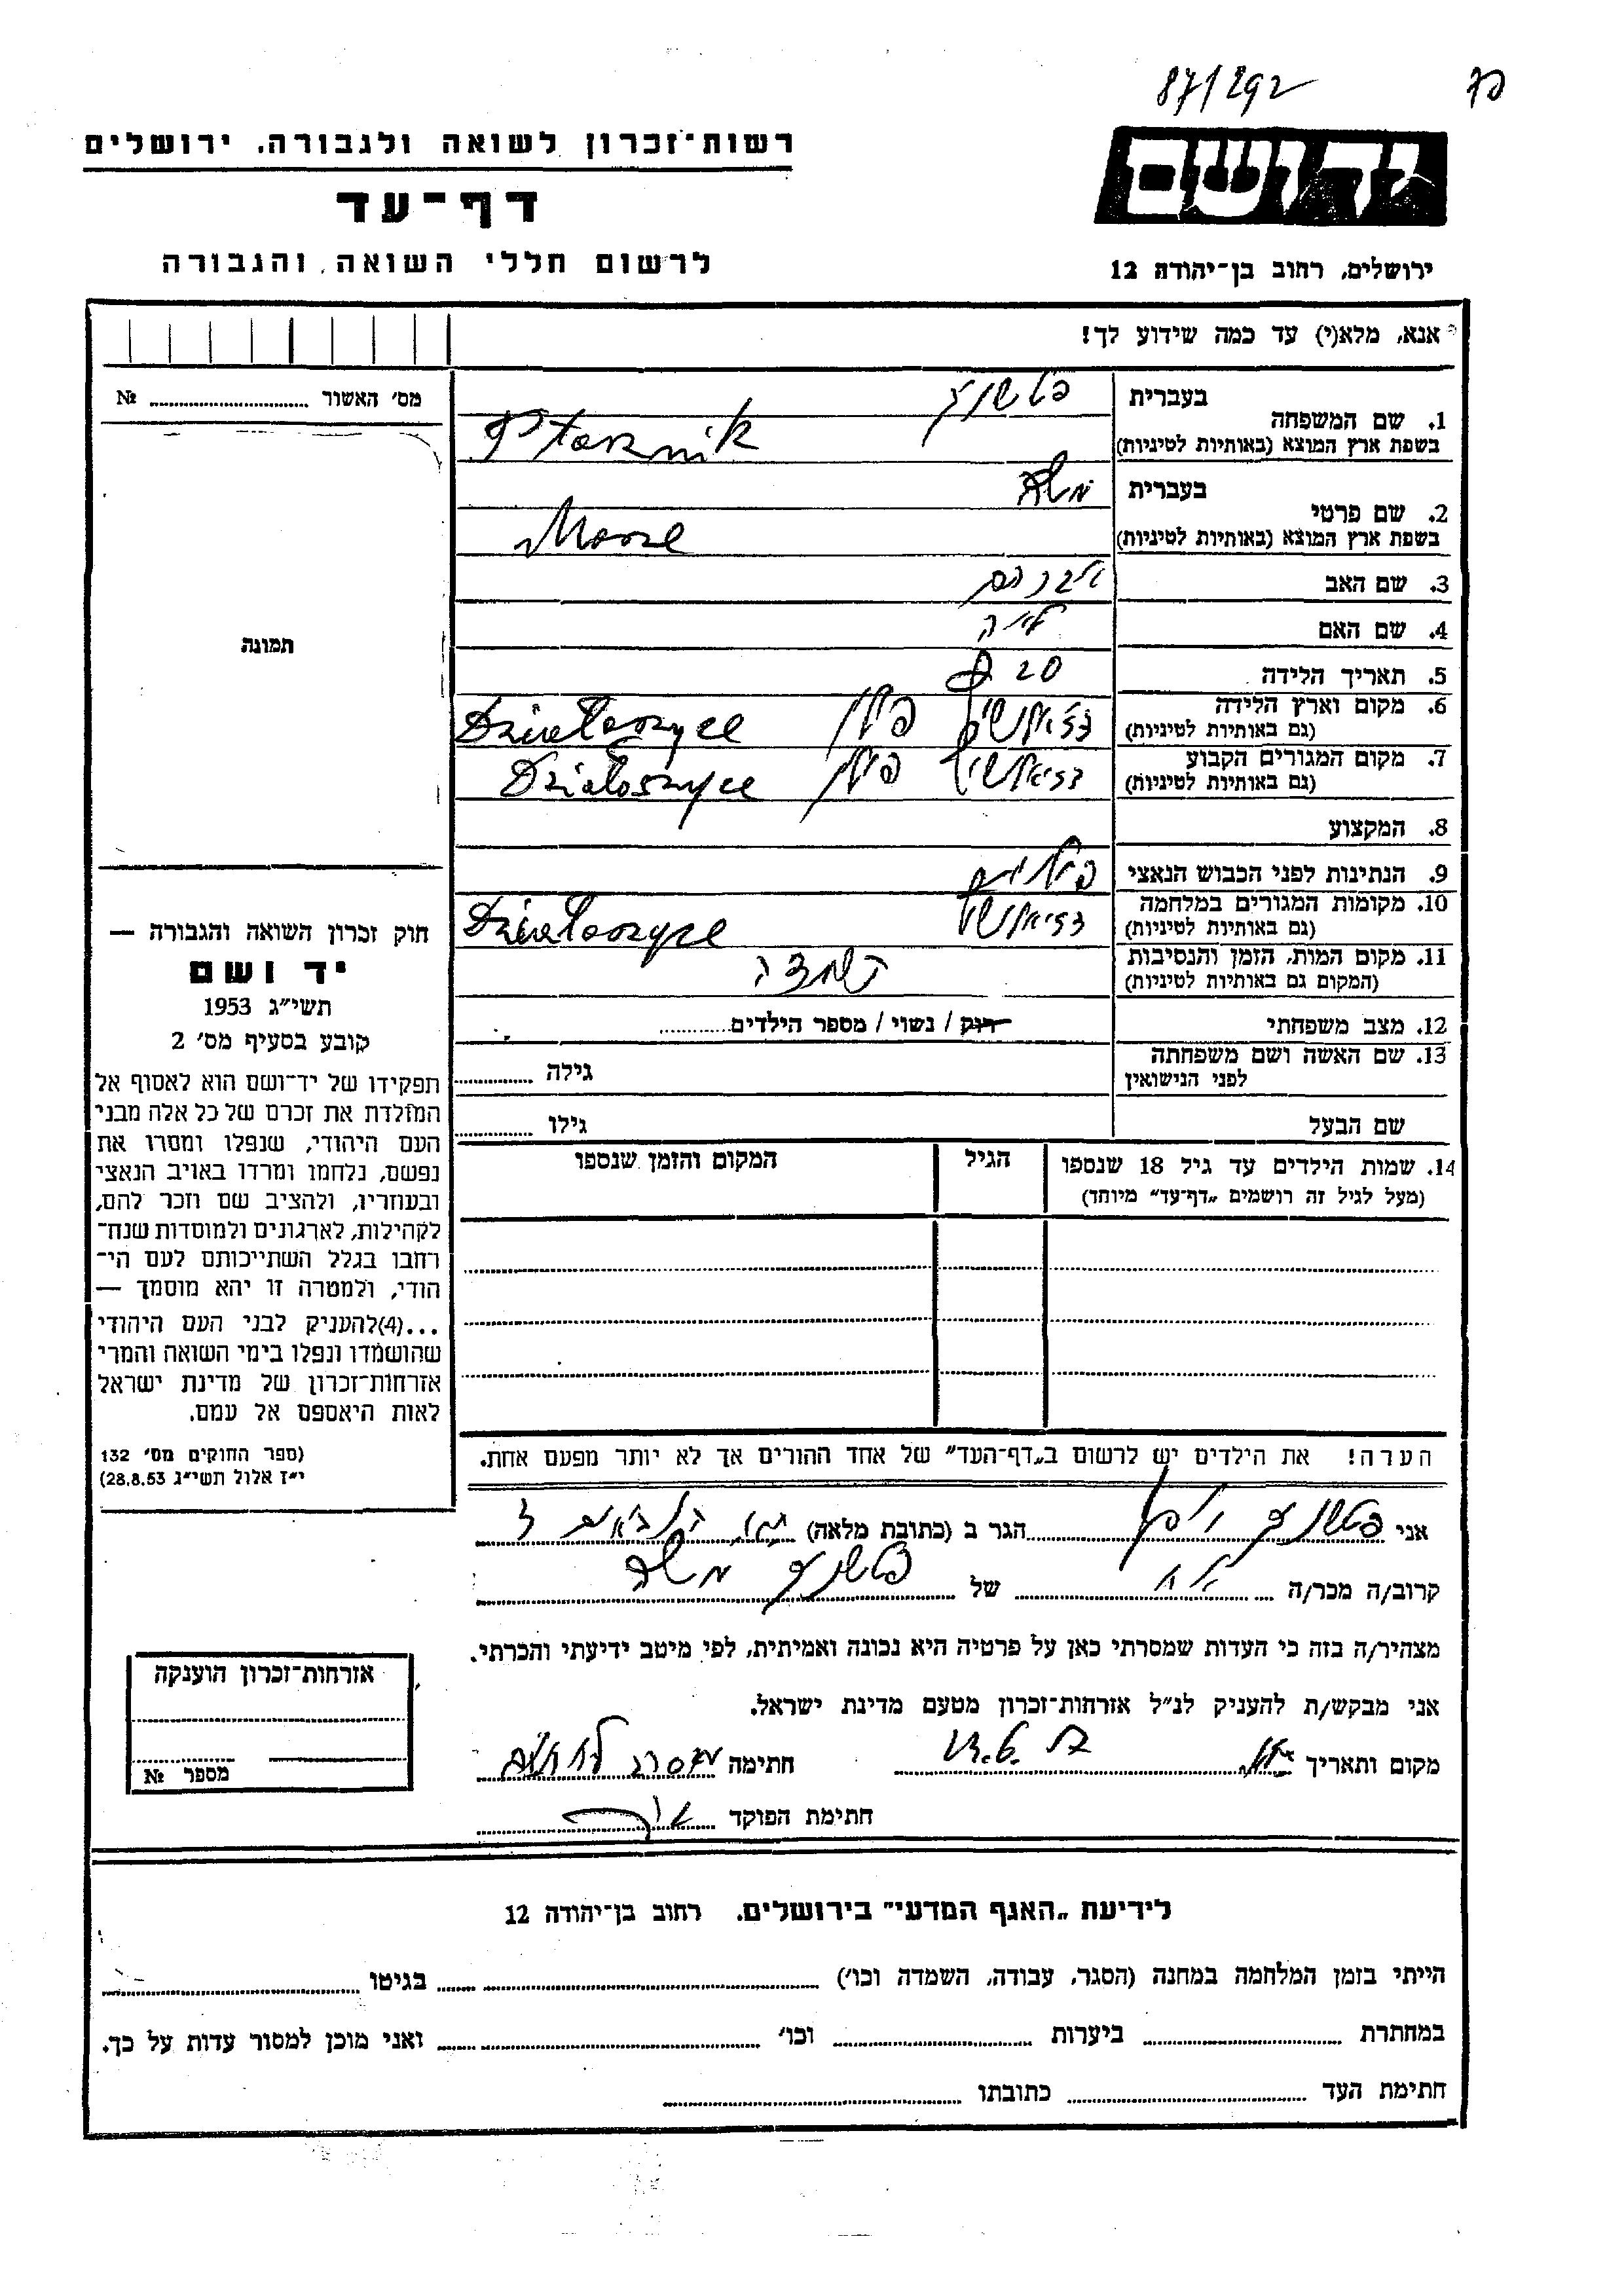 87/292
רשות־זכרון לשואה ולגבורה, ירושלים
יד ושם
דף־עד
לרשום חללי השואה והגבורה
ירושלים, רחוב בן־יהודה 12
אנא, מלא(י) עד כמה שידוע לך!
מס׳ האשור № 
בעברית
1. שם המשפחה
בשפת ארץ המוצא (באותיות לטיניות)
בעברית משה
2. שם פרטי
בשפת ארץ המוצא (באותיות לטיניות)
3. שם האב אברהם
4. שם האם לאה
תמונה
5. תאריך הלידה 20
6. מקום וארץ הלידה פולין Działoszyce
(גם באותיות לטיניות)
7. מקום המגורים הקבוע פולין Działoszyce
(גם באותיות לטיניות)
8. המקצוע
9. הנתינות לפני הכבוש הנאצי
10. מקומות המגורים במלחמה Działoszyce
(גם באותיות לטיניות)
11. מקום המות, הזמן והנסיבות השמדה
(המקום גם באותיות לטיניות)
12. מצב משפחתי רוק / נשוי / מספר הילדים
13. שם האשה ושם משפחתה
לפני הנישואין גילה
שם הבעל גילו
14. שמות הילדים עד גיל 18 שנספו הגיל המקום והזמן שנספו
(מעל לגיל זה רושמים „דף־עד״ מיוחד)
חוק זכרון השואה והגבורה —
יד ושם
תשי״ג 1953
קובע בסעיף מס׳ 2
תפקידו של יד־ושם הוא לאסוף אל
המולדת את זכרם של כל אלה מבני
העם היהודי, שנפלו ומסרו את
נפשם, נלחמו ומרדו באויב הנאצי
ובעוזריו, ולהציב שם וזכר להם,
לקהילות, לארגונים ולמוסדות שנח־
רבו בגלל השתייכותם לעם הי־
הודי, ולמטרה זו יהא מוסמך —
...(4) להעניק לבני העם היהודי
שהושמדו ונפלו בימי השואה והמרי
אזרחות־זכרון של מדינת ישראל
לאות היאספם אל עמם.
(ספר החוקים מס׳ 132
י״ז אלול תשי״ג 28.8.53)
הערה! את הילדים יש לרשום ב„דף־העד״ של אחד ההורים אך לא יותר מפעם אחת.
אני הגר ב (כתובת מלאה)
קרוב/ה מכר/ה אח של משה
מצהיר/ה בזה כי העדות שמסרתי כאן על פרטיה היא נכונה ואמיתית, לפי מיטב ידיעתי והכרתי.
אני מבקש/ת להעניק לנ״ל אזרחות־זכרון מטעם מדינת ישראל.
מקום ותאריך חתימה
חתימת הפוקד
אזרחות־זכרון הוענקה
מספר №
לידיעת „האגף המדעי״ בירושלים, רחוב בן־יהודה 12
הייתי בזמן המלחמה במחנה (הסגר, עבודה, השמדה וכו׳) בגיטו
במחתרת ביערות וכו׳ ואני מוכן למסור עדות על כך.
חתימת העד כתובתו